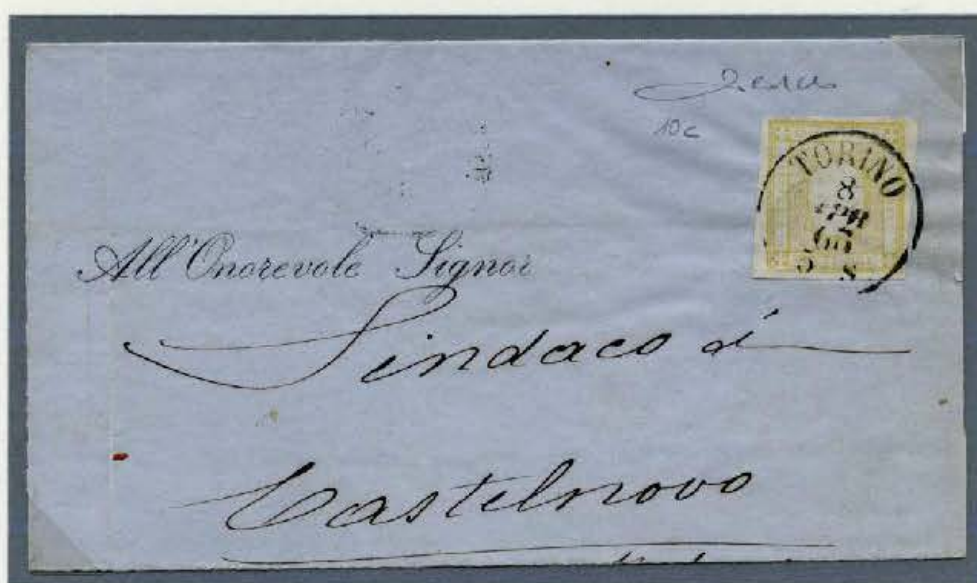 10c
TORINO
8
APR
66
5 S
All'Onorevole Signor
Sindaco di
Castelnovo